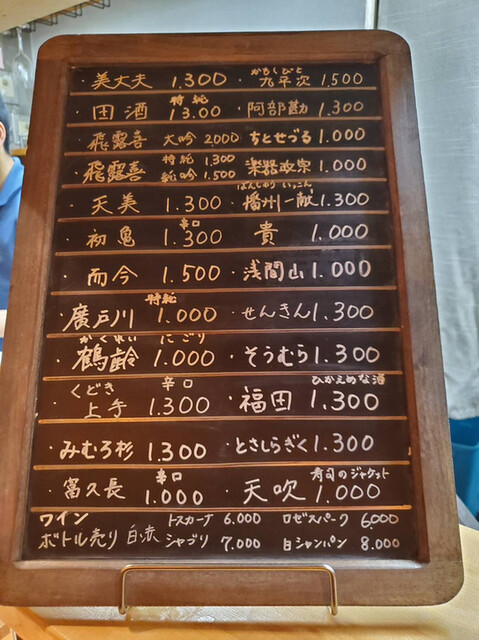 ・美丈夫 1.300 ・かもしびと 九平次 1,500
・田酒 特純 13.00 阿部勘 1,300
・飛露喜 大吟 2,000 ちとせづる 1.000
・飛露喜 特純 1.300 純吟 1.500 楽器政宗 1,000
・天美 1.300 ・ばんしゅう いっこん 播州一献 1.300
・初亀 辛口 1.300 貴 1.000
・而今 1.500 ・浅間山 1.000
・廣戸川 特純 1.000 ・せんきん 1.300
・かくれい 鶴齢 にごり 1.000 ・そうむら 1.300
・くどき上手 辛口 1.300 ・福田 ひかえめな酒 1.300
・みむろ杉 1.300 ・とさしらぎく 1.300
・富久長 辛口 1.000 ・天吹 寿司のジャケット 1.000
ワイン トスカーナ 6.000 ロゼスパーク 6,000
ボトル売り 白.赤 シャブリ 7.000 白シャンパン 8.000